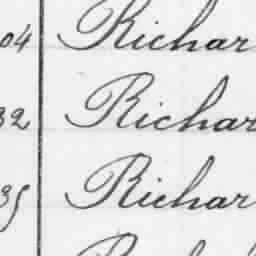 04 Richar
32 Richar
35 Richar